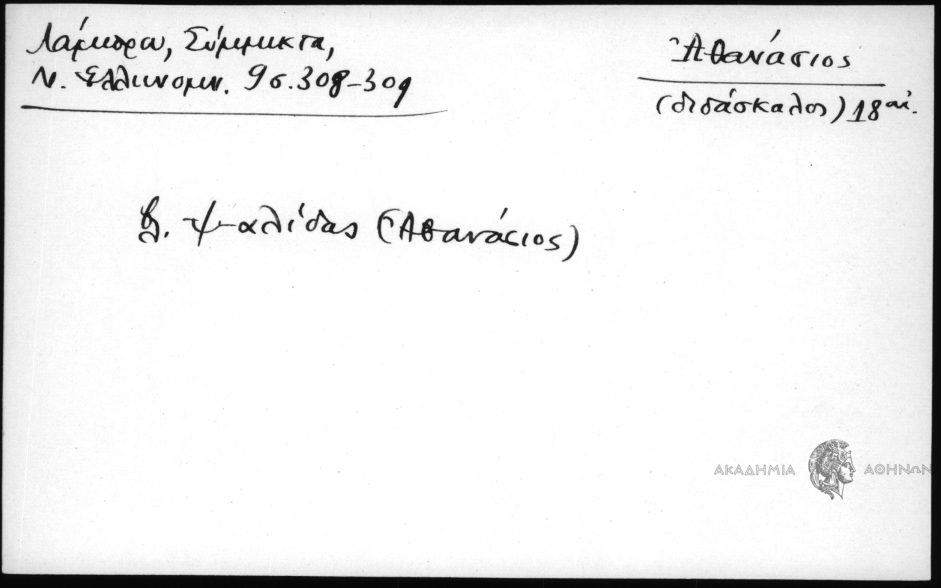 Λάμπρου, Σύμμικτα,
Ν. Ελληνομν. 9 σ. 308-309
Ἀθανάσιος
(διδάσκαλος) 18 αἰ.
βλ. Ψαλίδας (Ἀθανάσιος)
ΑΚΑΔΗΜΙΑ ΑΘΗΝΩΝ